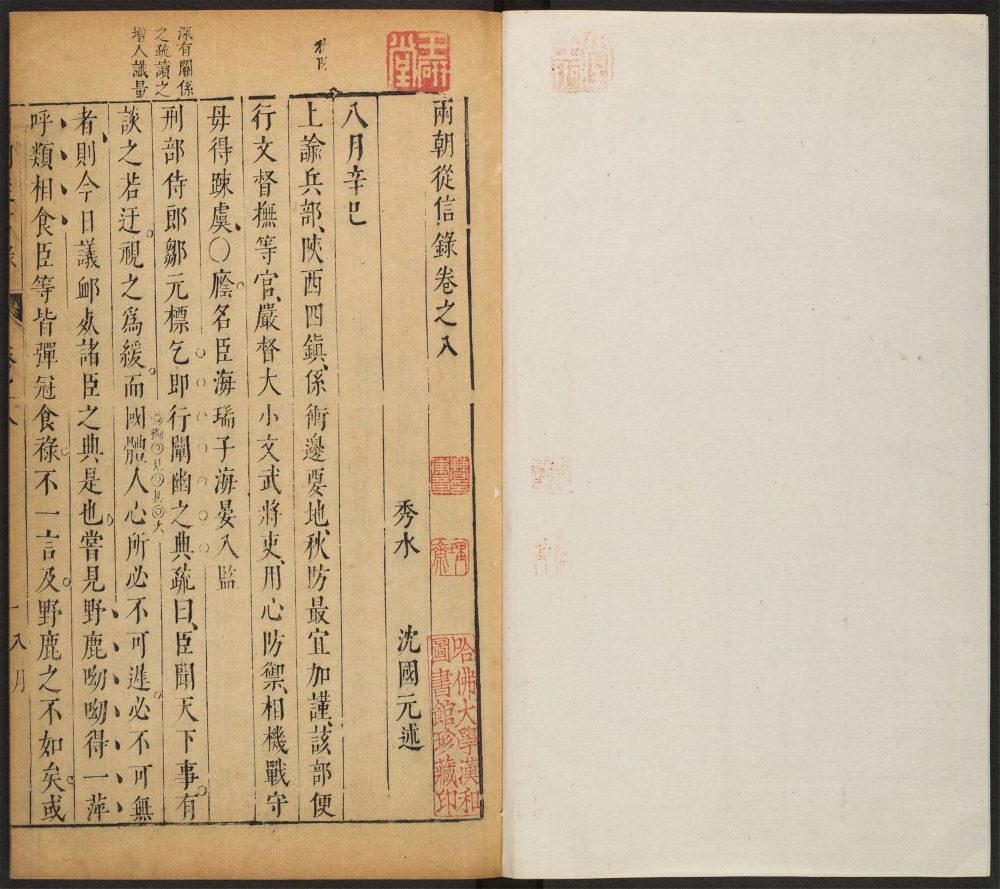 兩朝從信錄卷之八
秀水 沈國元述
八月辛巳
上諭兵部、陝西四鎮、係衝邊要地、秋防最宜加謹、該部便
行文督撫等官、嚴督大小文武將吏、用心防禦、相機戰守
毋得踈虞、○廕名臣海瑞子海晏入監
刑部侍郎鄒元標乞即行闡幽之典疏曰、臣聞天下事有
談之若迂視之爲緩而國體人心所必不可遲必不可無
者、則今日議卹
諸臣之典是也嘗見野鹿呦呦得一萍
呼類相食臣等皆彈冠食祿不一言及野鹿之不如矣或
深有關係
之疏讀之
增人識量
八月
哈佛大學漢和
圖書館珍藏印